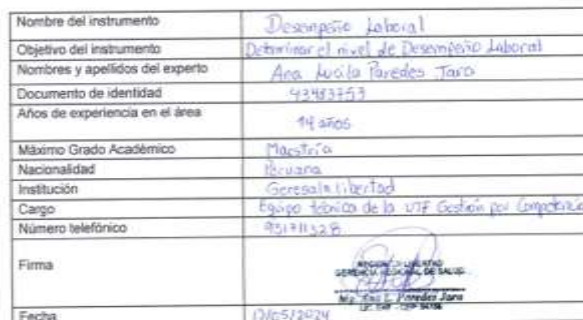 Nombre del instrumento Desempeño Laboral
Objetivo del instrumento Determinar el nivel de Desempeño Laboral
Nombres y apellidos del experto Ana Lucila Paredes Jara
Documento de identidad
Años de experiencia en el área 14 años
Máximo Grado Académico Maestría
Nacionalidad Peruana
Institución Geresa la libertad
Cargo Equipo técnico de la UTF Gestión por Competencia
Número telefónico
Firma
GERENCIA REGIONAL DE SALUD
Mg. Ana L. Paredes Jara
Fecha /05/2024